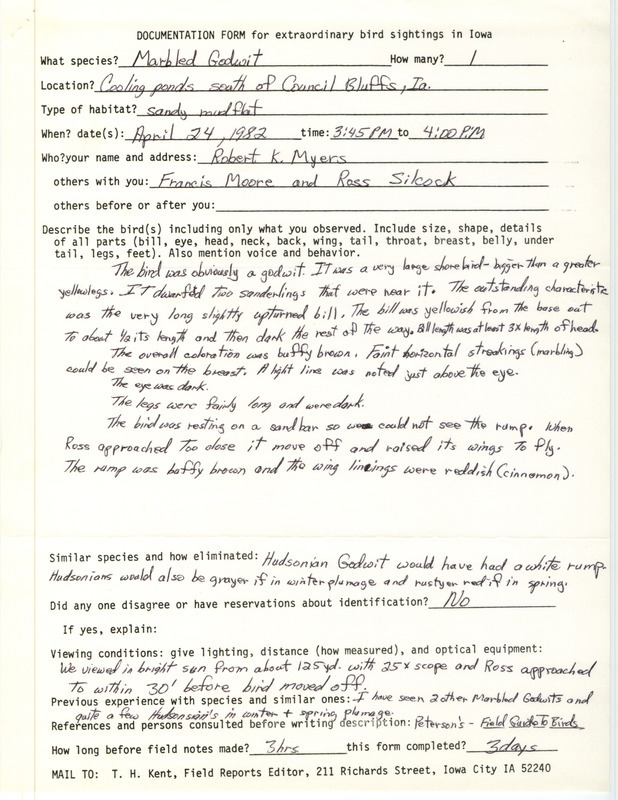 DOCUMENTATION FORM for extraordinary bird sightings in Iowa
What species? Marbled Godwit How many? 1
Location? Cooling ponds south of Council Bluffs, Ia.
Type of habitat? sandy mudflat
When? date(s): April 24, 1982 time: 3:45 PM to 4:00 P.M
Who?your name and address: Robert K. Myers
others with you: Francis Moore and Ross Silcock
others before or after you:
Describe the bird(s) including only what you observed. Include size, shape, details
of all parts (bill, eye, head, neck, back, wing, tail, throat, breast, belly, under
tail, legs, feet). Also mention voice and behavior.
The bird was obviously a godwit. It was a very large shorebird - bigger than a greater
yellowlegs. It dwarfed two sanderlings that were near it. The outstanding characteristic
was the very long slightly upturned bill. The bill was yellowish from the base out
to about 1/2 its length and then dark the rest of the way. Bill length was at least 3x length of head.
The overall coloration was buffy brown. Faint horizontal streakings (marbling)
could be seen on the breast. A light line was noted just above the eye.
The eye was dark.
The legs were fairly long and were dark.
The bird was resting on a sandbar so we could not see the rump. When
Ross approached too close it move off and raised its wings to fly.
The rump was buffy brown and the wing linings were reddish (cinnamon).
Similar species and how eliminated: Hudsonian Godwit would have had a white rump.
Hudsonians would also be grayer if in winter plumage and rustyer red if in spring.
Did any one disagree or have reservations about identification? No
If yes, explain:
Viewing conditions: give lighting, distance (how measured), and optical equipment:
We viewed in bright sun from about 125yd. with 25x scope and Ross approached
to within 30' before bird moved off.
Previous experience with species and similar ones: I have seen 2 other Marbled Godwits and
quite a few Hudsonian's in winter + spring plumage.
References and persons consulted before writing description: Peterson's - Field Guide To Birds
How long before field notes made? 3hrs this form completed? 3days
MAIL TO: T. H. Kent, Field Reports Editor, 211 Richards Street, Iowa City IA 52240